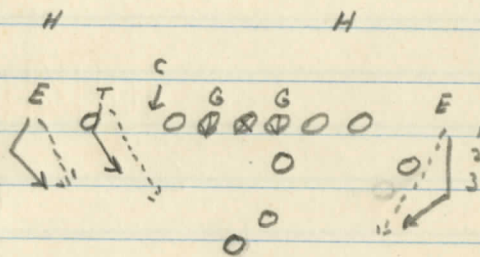 H H
C
E T G G E
1
2
3